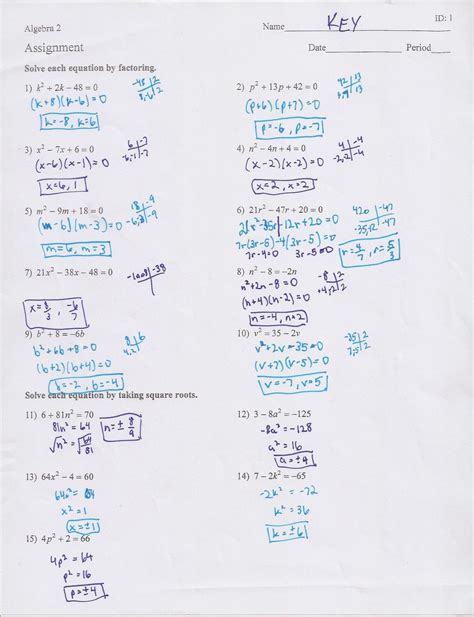 Algebra 2
Name KEY
ID: 1
Assignment
Date Period
Solve each equation by factoring.
1) k² + 2k − 48 = 0
-48 | 2
8,-6 | 2
(k+8)(k-6)=0
k=-8, k=6
2) p² + 13p + 42 = 0
42 | 13
(p+6)(p+7)=0
p=-6, p=-7
3) x² − 7x + 6 = 0
6 | -7
-6,-1 | -7
(x-6)(x-1)=0
x=6, 1
4) n² − 4n + 4 = 0
4 | -4
-2,-2 | -4
(x-2)(x-2)=0
x=2, x=2
5) m² − 9m + 18 = 0
18 | -9
-6,-3 | -9
(m-6)(m-3)=0
m=6, m=3
6) 21r² − 47r + 20 = 0
420 | -47
-35,-12 | -47
21r²-35r-12r+20=0
7r(3r-5)-4(3r-5)=0
7r-4=0 3r-5=0
r=4/7, r=5/3
7) 21x² − 38x − 48 = 0
-1008 | -38
x=8/3, -6/7
8) n² − 8 = −2n
-8 | 2
+4,-2 | 2
n²+2n-8=0
(n+4)(n-2)=0
n=-4, n=2
9) b² + 8 = −6b
8 | 6
4,2 |
b²+6b+8=0
(b+2)(b+4)=0
b=-2, b=-4
10) v² = 35 − 2v
-35 | 2
7,-5 | 2
v²+2v-35=0
(v+7)(v-5)=0
v=-7, v=5
Solve each equation by taking square roots.
11) 6 + 81n² = 70
81n²=64
√n² = √64/81
n=±8/9
12) 3 − 8a² = −125
-8a²=-128
a²=16
a=±4
13) 64x² − 4 = 60
64x²=64
x²=1
x=±1
14) 7 − 2k² = −65
-2k²=-72
k²=36
k=±6
15) 4p² + 2 = 66
4p²=64
p²=16
p=±4